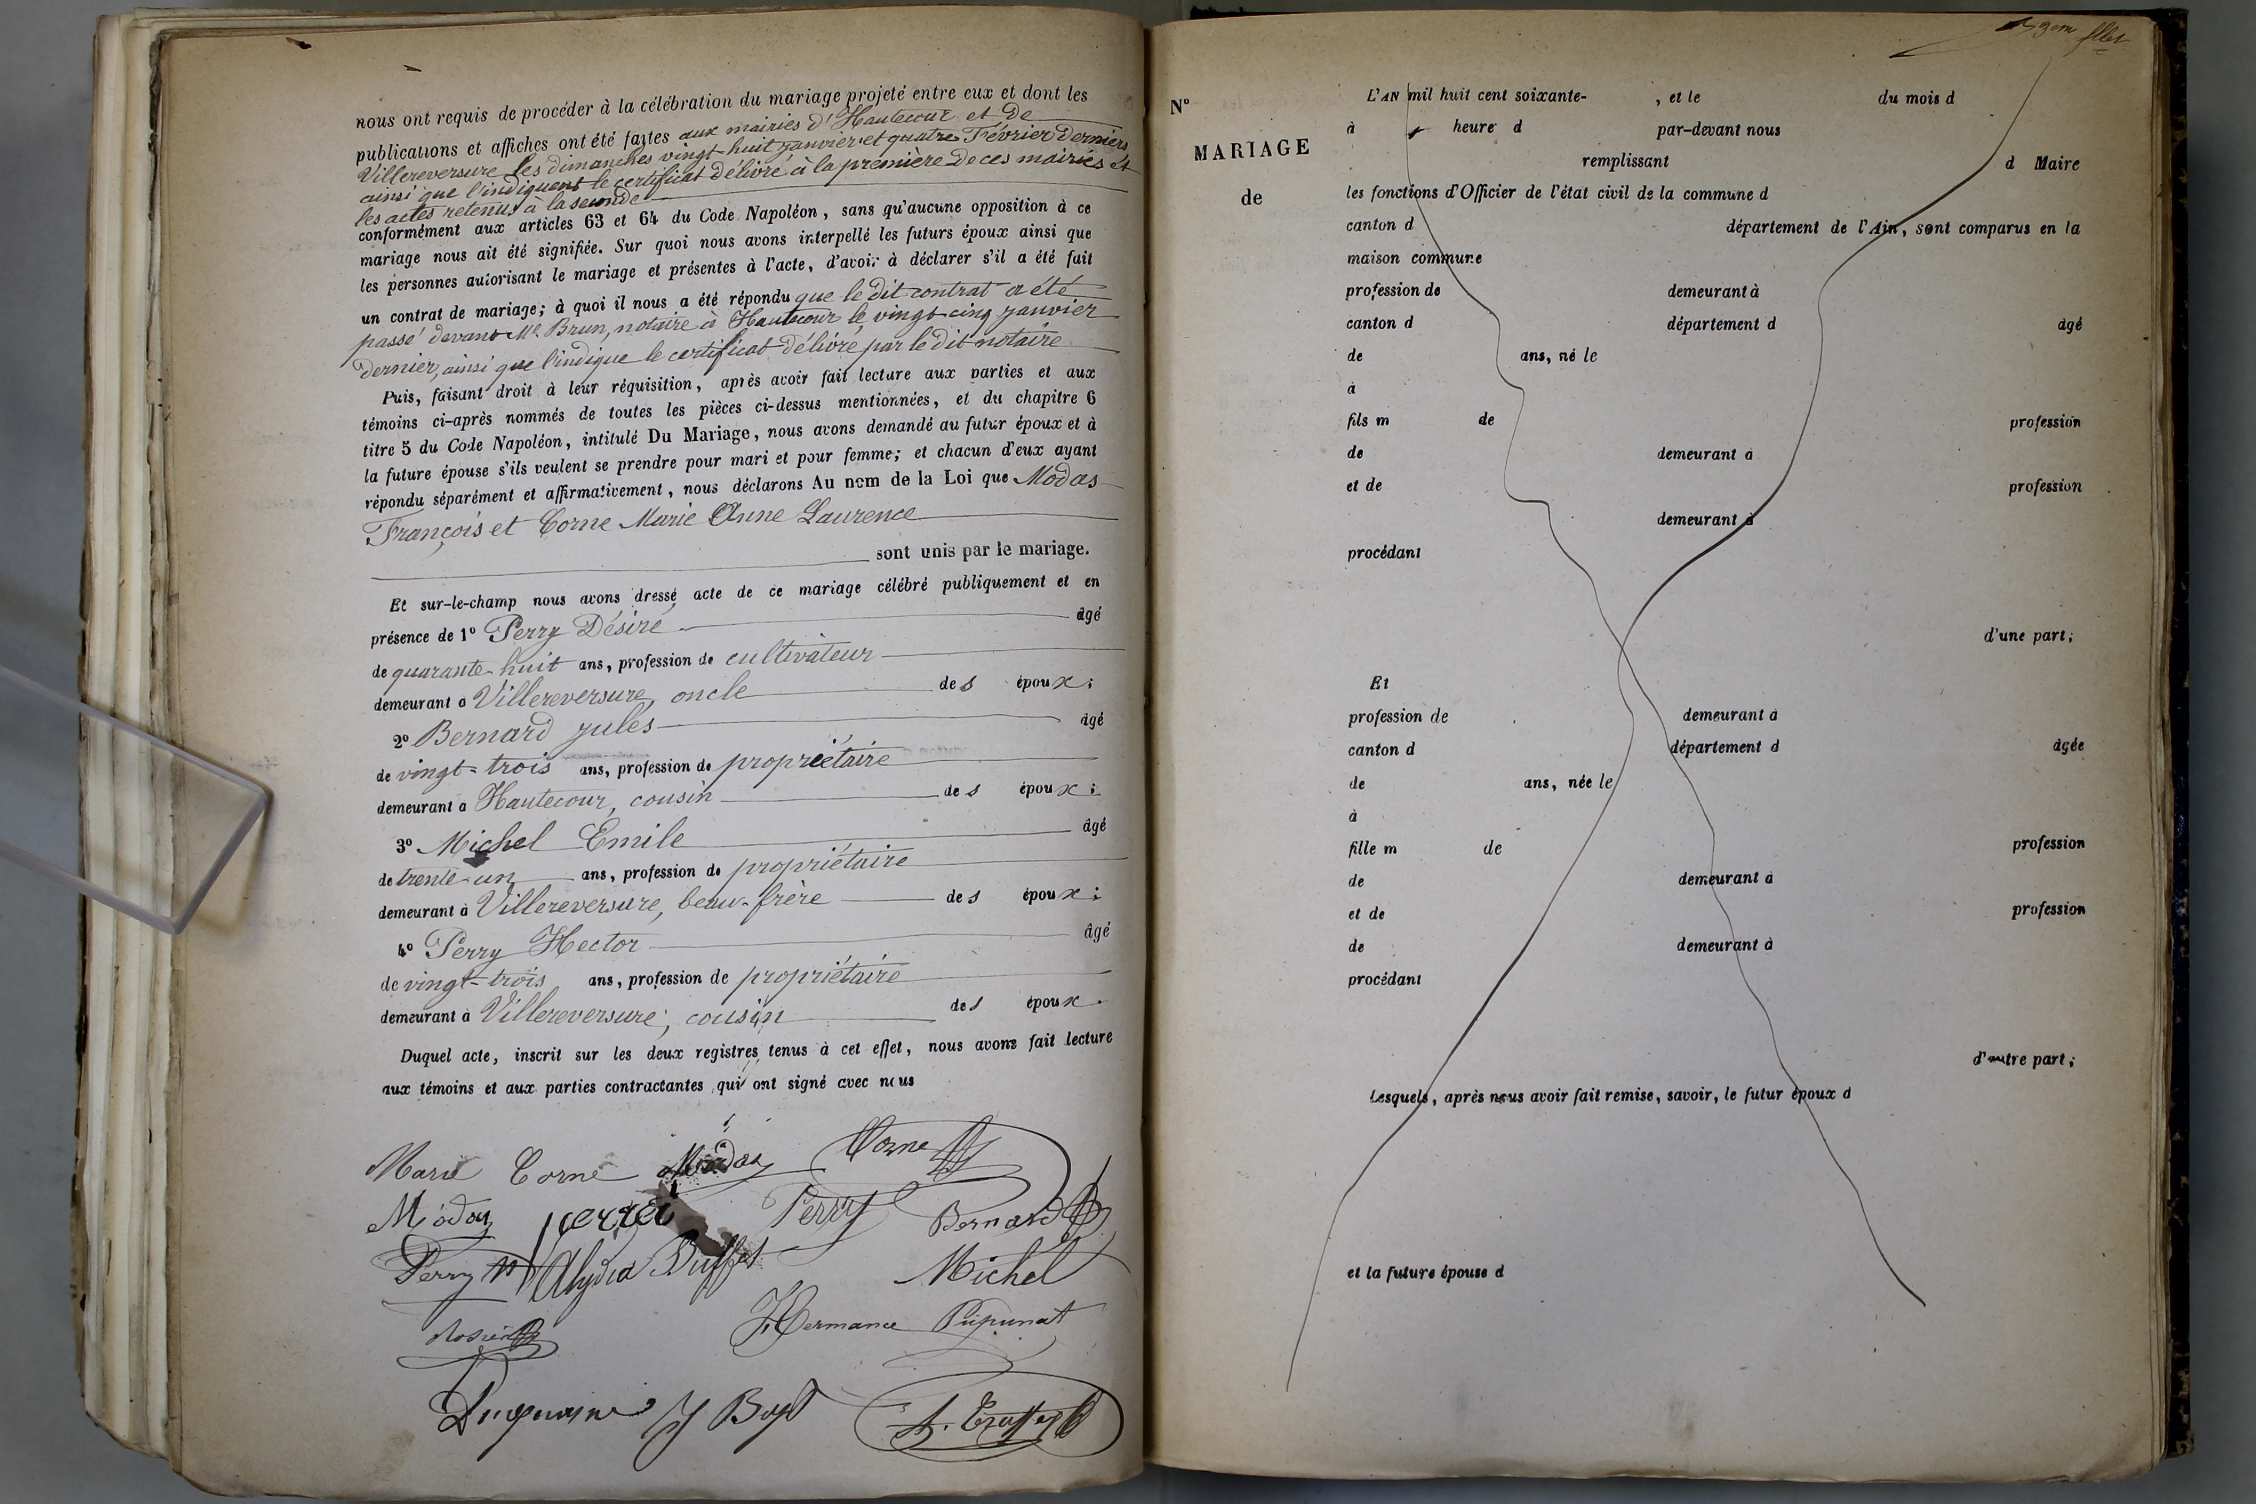 nous ont requis de procéder à la célébration du mariage projeté entre eux et dont les
publications et affiches ont été faites aux mairies d'Hautecour et de
Villereversure les dimanches vingt-huit janvier et quatre Février derniers
ainsi que l'indiquent le certificat délivré à la première de ces mairies et
les actes retenus à la seconde
conformément aux articles 63 et 64 du Code Napoléon, sans qu'aucune opposition à ce
mariage nous ait été signifiée. Sur quoi nous avons interpellé les futurs époux ainsi que
les personnes autorisant le mariage et présentes à l'acte, d'avoir à déclarer s'il a été fait
un contrat de mariage; à quoi il nous a été répondu que le dit contrat a été
passé devant Me Brun, notaire à Hautecour le vingt cinq janvier
dernier, ainsi que l'indique le certificat délivré par le dit notaire
Puis, faisant droit à leur réquisition, après avoir fait lecture aux parties et aux
témoins ci-après nommés de toutes les pièces ci-dessus mentionnées, et du chapitre 6
titre 5 du Code Napoléon, intitulé Du Mariage, nous avons demandé au futur époux et à
la future épouse s'ils veulent se prendre pour mari et pour femme; et chacun d'eux ayant
répondu séparément et affirmativement, nous déclarons Au nom de la Loi que Modas
François et Corne Marie Anne Laurence
sont unis par le mariage.
Et sur-le-champ nous avons dressé acte de ce mariage célébré publiquement et en
présence de 1º Perry Désiré âgé
de quarante-huit ans, profession de cultivateur
demeurant à Villereversure, oncle des époux;
2º Bernard Jules âgé
de vingt-trois ans, profession de propriétaire
demeurant à Hautecour, cousin des époux;
3º Michel Emile âgé
de trente-un ans, profession de propriétaire
demeurant à Villereversure, beau-frère des époux;
4º Perry Hector âgé
de vingt-trois ans, profession de propriétaire
demeurant à Villereversure, cousin des époux.
Duquel acte, inscrit sur les deux registres tenus à cet effet, nous avons fait lecture
aux témoins et aux parties contractantes qui ont signé avec nous
Marie Corne Modas Corne
Modas Perry Bernard
Perry Alydia Buffet Michel
Hermance Pupunat
Nº
MARIAGE
de
L'AN mil huit cent soixante- , et le du mois d
à heure d par-devant nous
remplissant d Maire
les fonctions d'Officier de l'état civil de la commune d
canton d département de l'Ain, sont comparus en la
maison commune
profession de demeurant à
canton d département d âgé
de ans, né le
à
fils m de profession
de demeurant à
et de profession
demeurant à
procédant
d'une part;
Et
profession de demeurant à
canton d département d âgée
de ans, née le
à
fille m de profession
de demeurant à
et de profession
de demeurant à
procédant
d'autre part;
Lesquels, après nous avoir fait remise, savoir, le futur époux d
et la future épouse d